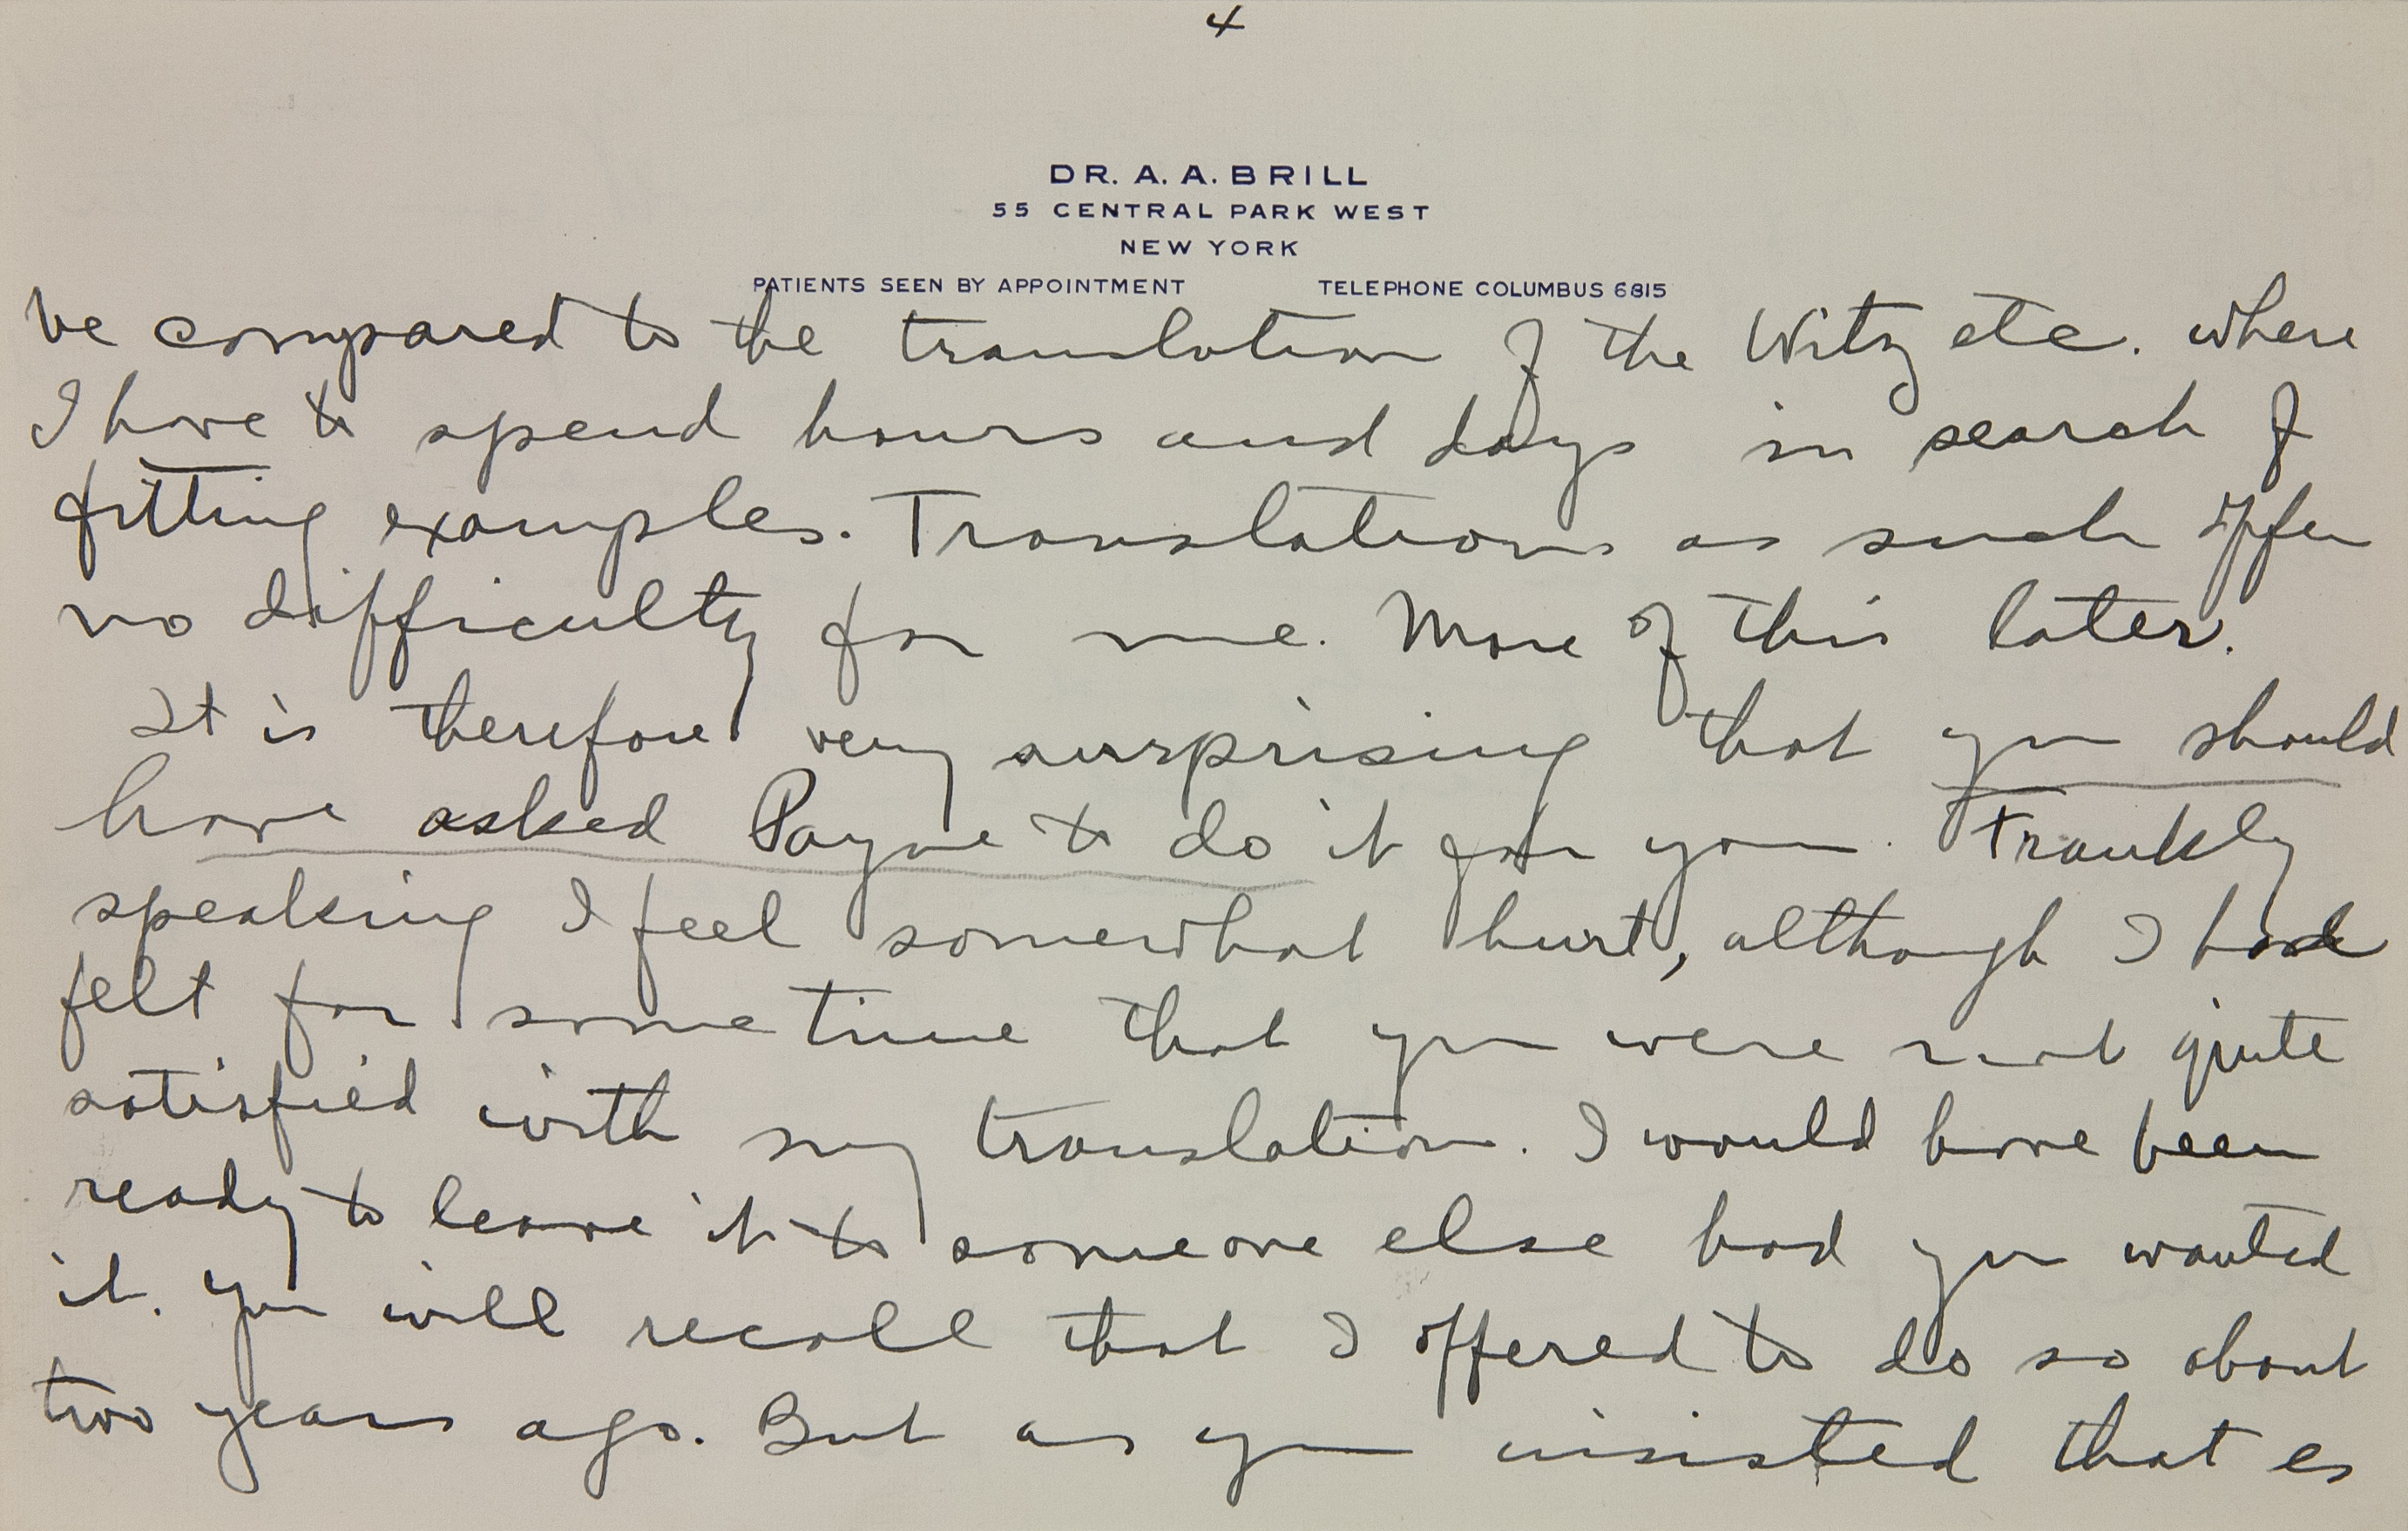 4
DR. A. A. BRILL
55 CENTRAL PARK WEST
NEW YORK
PATIENTS SEEN BY APPOINTMENT TELEPHONE COLUMBUS 6815
be compared to the translation of the Witz etc. where
I have to spend hours and days in search of
fitting examples. Translations as such offer
no difficulty for me. More of this later.
It is therefore very surprising that you should
have asked Payne to do it for you. Frankly
speaking I feel somewhat hurt, although I had
felt for sometime that you were not quite
satisfied with my translation. I would have been
ready to leave it to someone else had you wanted
it. You will recall that I offered to do so about
two years ago. But as you insisted that es